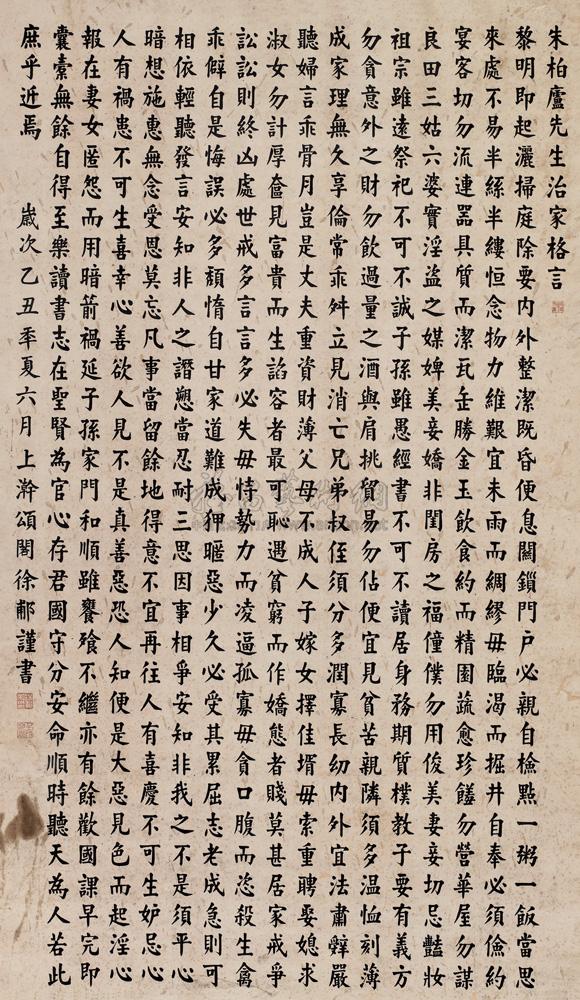 朱柏廬先生治家格言
黎明即起灑掃庭除要內外整潔既昏便息關鎖門戶必親自檢點一粥一飯當思
來處不易半絲半縷恒念物力維艱宜未雨而綢繆毋臨渴而掘井自奉必須儉約
宴客切勿流連器具質而潔瓦缶勝金玉飲食約而精園蔬愈珍饈勿營華屋勿謀
良田三姑六婆實淫盜之媒婢美妾嬌非閨房之福僮僕勿用俊美妻妾切忌豔妝
祖宗雖遠祭祀不可不誠子孫雖愚經書不可不讀居身務期質樸教子要有義方
勿貪意外之財勿飲過量之酒與肩挑貿易勿佔便宜見貧苦親隣須多温恤刻薄
成家理無久享倫常乖舛立見消亡兄弟叔侄須分多潤寡長幼內外宜法肅辭嚴
聽婦言乖骨肉豈是丈夫重資財薄父母不成人子嫁女擇佳壻毋索重聘娶媳求
淑女勿計厚奩見富貴而生諂容者最可恥遇貧窮而作嬌態者賤莫甚居家戒爭
訟訟則終凶處世戒多言言多必失毋恃勢力而凌逼孤寡毋貪口腹而恣殺生禽
乖僻自是悔誤必多頹惰自甘家道難成狎暱惡少久必受其累屈志老成急則可
相依輕聽發言安知非人之譖愬當忍耐三思因事相爭安知非我之不是須平心
暗想施惠無念受恩莫忘凡事當留餘地得意不宜再往人有喜慶不可生妒忌心
人有禍患不可生喜幸心善欲人見不是真善惡恐人知便是大惡見色而起淫心
報在妻女匿怨而用暗箭禍延子孫家門和順雖饔飱不繼亦有餘歡國課早完即
囊橐無餘自得至樂讀書志在聖賢為官心存君國守分安命順時聽天為人若此
庶乎近焉　歲次乙丑季夏六月上澣頌閣徐郙謹書